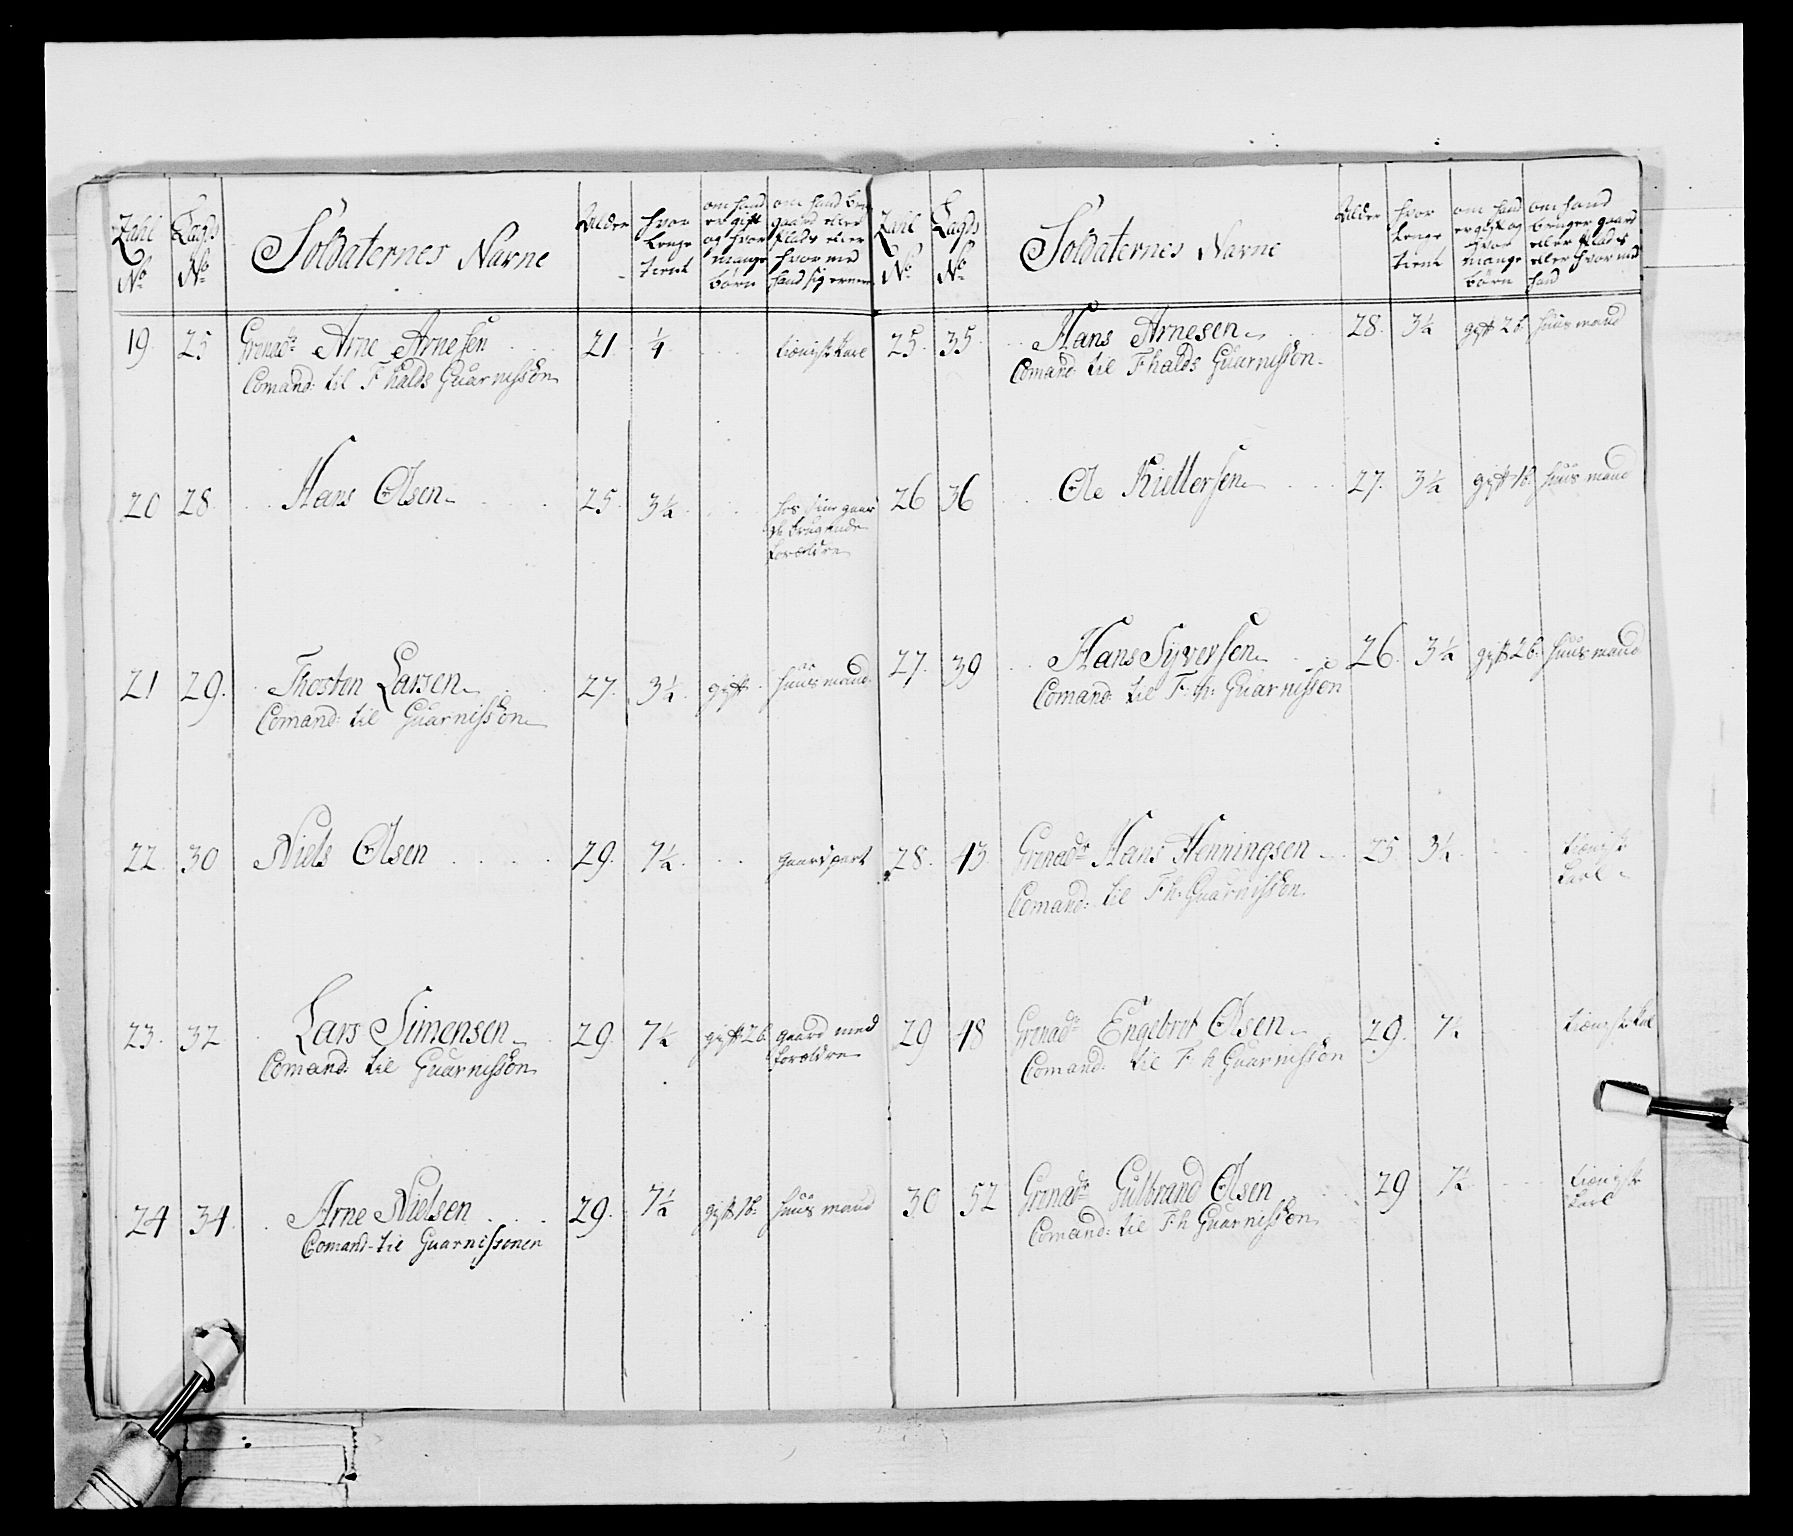 Zahl No
Lægds No
Soldaternes Navne
Alder
hvor Lenge tient
om hand er gift og hvor mange børn
om hand bru gaard eller Plads eller hvor med hand sig ernær
19 25 Grenadr Arne Arnesen 21 ¼ tienist karl
Comand: til Fhalds Guarnisson
20 28 Hans Olsen 25 3½ hos sine gaar brugende
Forældre
21 29. Thosten Larsen 27. 3½ gift huusmand
Comand: til Guarnisson
22 30 Niels Olsen 29. 7½ gaardpart
23. 32 Lars Simensen 29. 7½ gift 2b. gaard med
Comand: til Guarnisson Forældre
24 34. Arne Nielsen 29. 7½ gift 1b. huus mand
Comand- til Guarnissonen
Zahl No
Lægds No
Soldaternes Navne
Alder
hvor Lenge tient
om hand er gift og hvor mange børn
om hand bruger gaard eller Plads eller hvor med hand
25. 35. Hans Arnesen 28. 3½ gift 2b. huusmand
Comand: til Fhalds Guarnisson
26 36 Ole 27. 3½ gift 1b. huus mand
27. 39 Hans Syversen 26. 3½ gift 2b. huus mand
Comand: til F: h: Guarnisson
28. 43 Grenadr Hans Henningsen 25 3½ tienist
Comand: til F:h: Guarnisson karl
29 48 Grenadr Engebret Olsen 29. 7½ tienist karl
Comand: til F: h Guarnisson
30 52 Grenadr Gulbrand Olsen 29 7½ tienist
Comand: til F:h Guarnisson karl